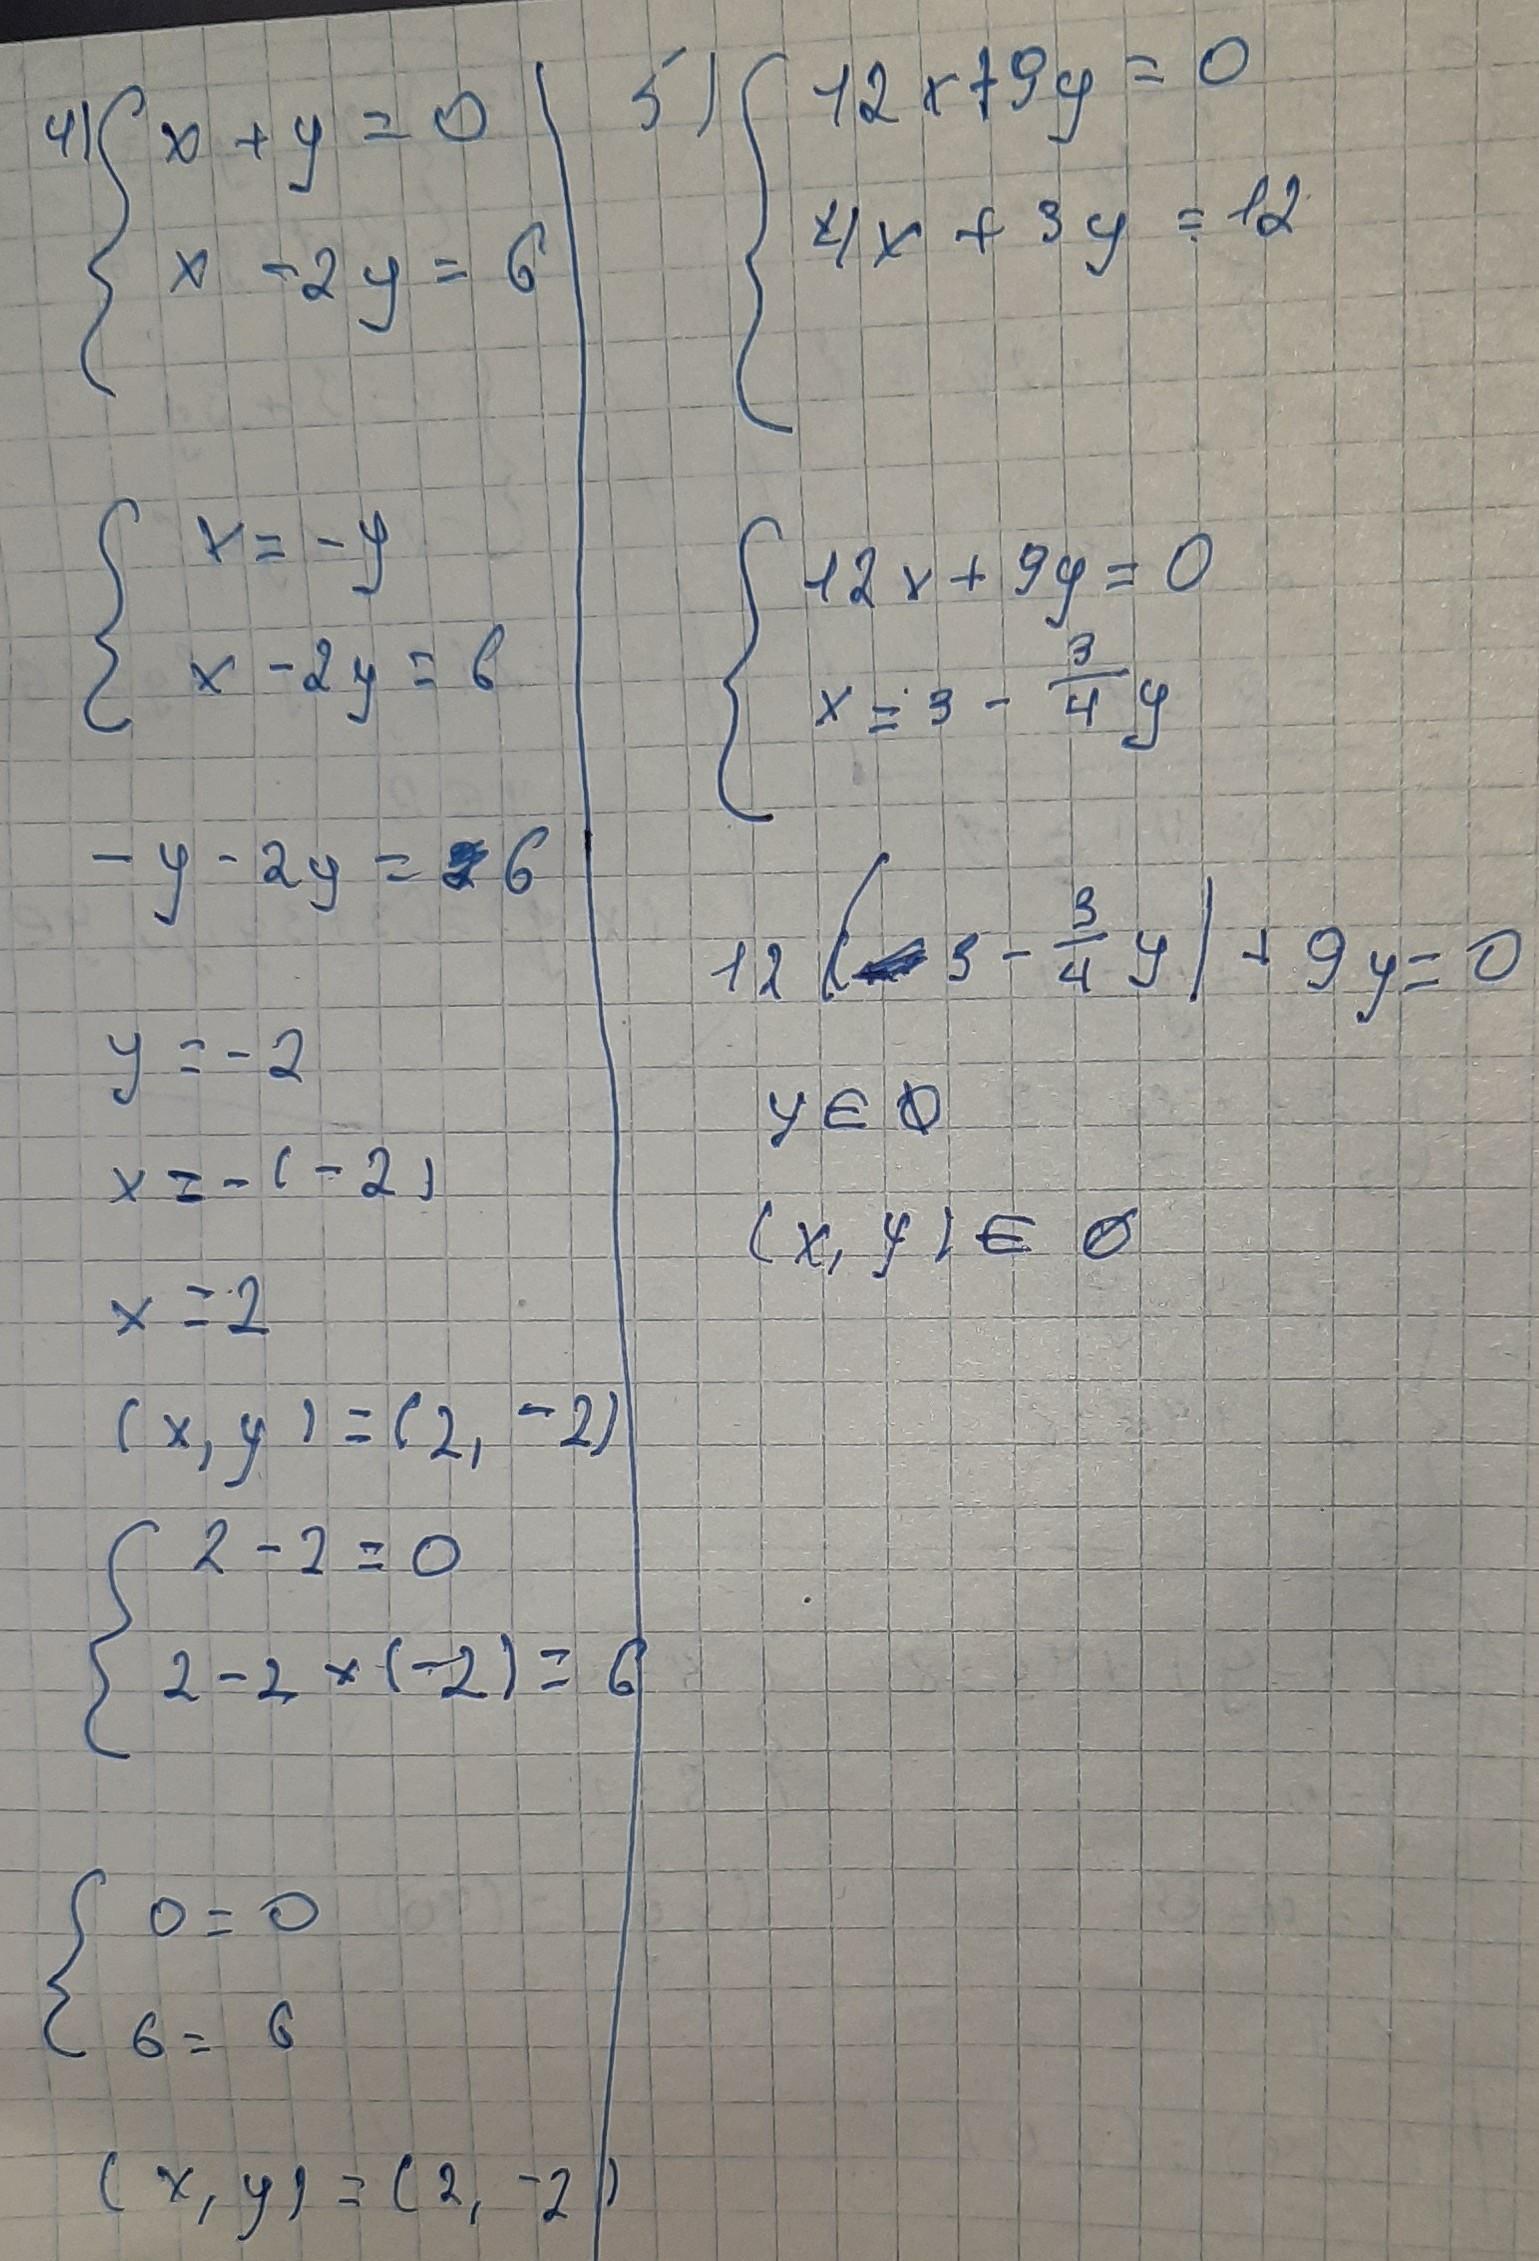 4) x + y = 0
x - 2y = 6
x = -y
x - 2y = 6
-y - 2y = 6
y = -2
x = -(-2)
x = 2
(x, y) = (2, -2)
2 - 2 = 0
2 - 2 × (-2) = 6
0 = 0
6 = 6
(x, y) = (2, -2)
5) 12x + 9y = 0
4x + 3y = 12
12x + 9y = 0
x = 3 - 3/4 y
12(3 - 3/4 y) + 9y = 0
y ∈ ∅
(x, y) ∈ ∅